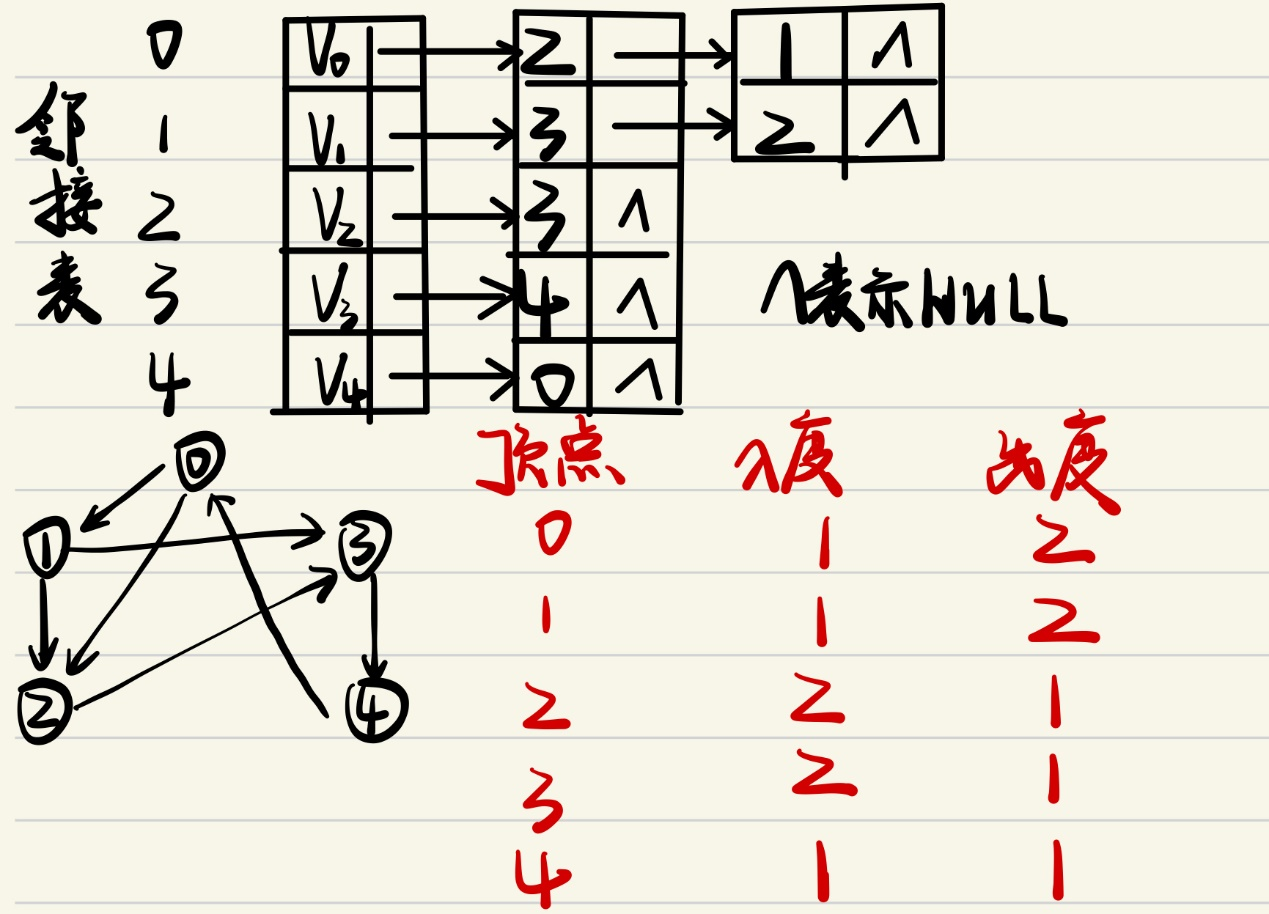 邻接表
0 V0 2 1 ∧
1 V1 3 2 ∧
2 V2 3 ∧
3 V3 4 ∧
4 V4 0 ∧
∧表示NULL
0
1 3
2 4
顶点 入度 出度
0 1 2
1 1 2
2 2 1
3 2 1
4 1 1